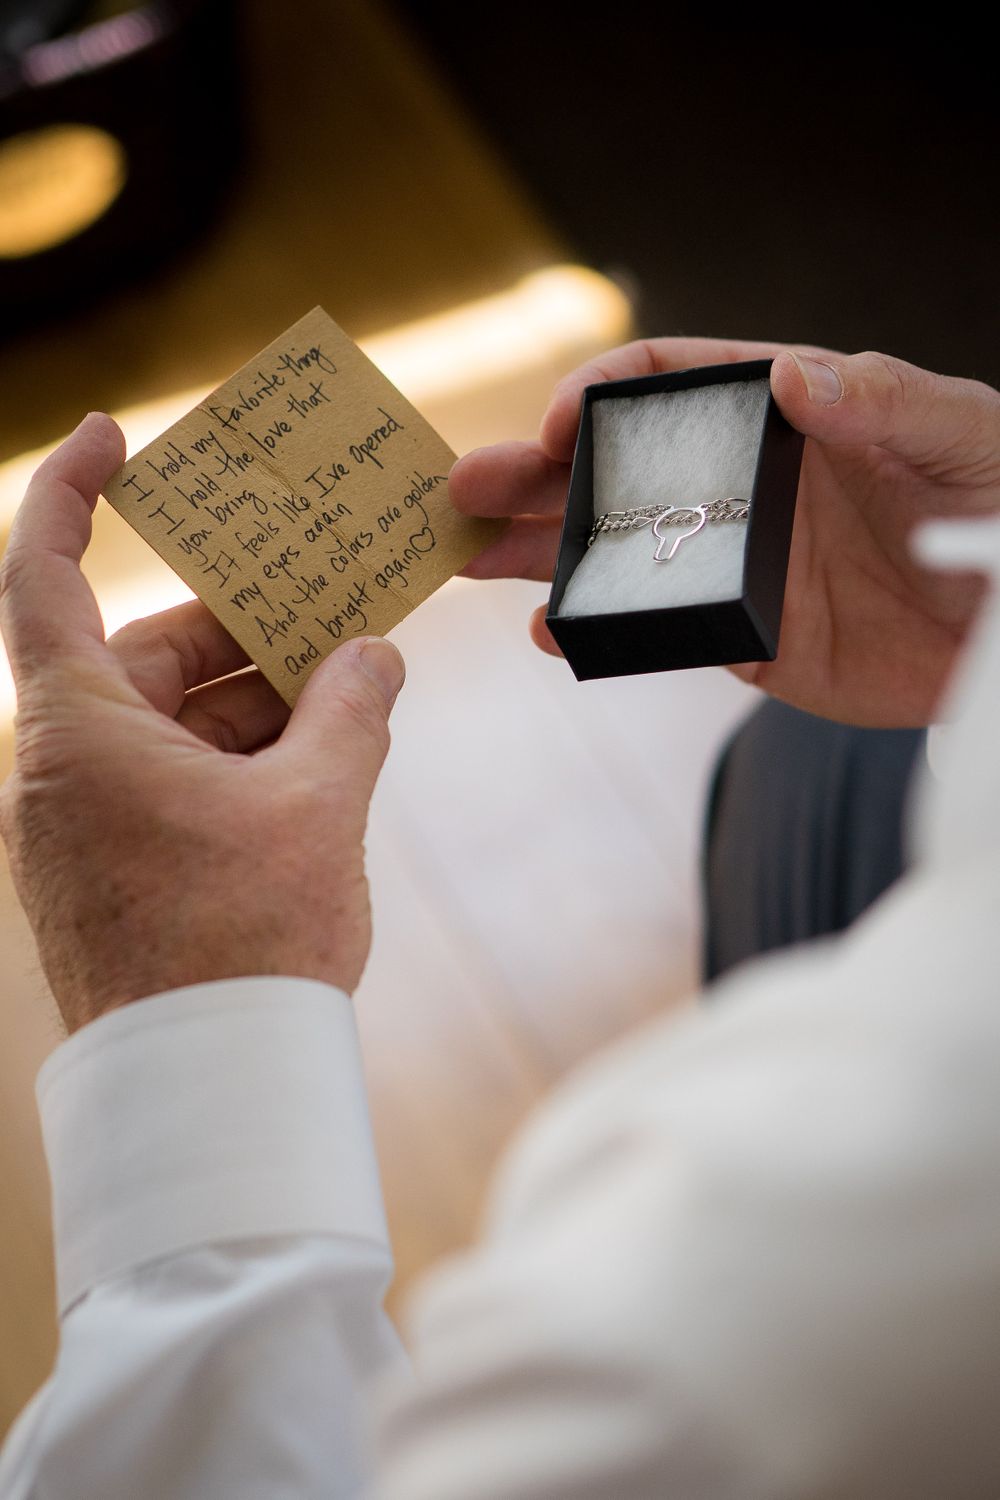 I hold my favorite thing
I hold the love that
you bring
It feels like I've opened
my eyes again
And the colors are golden
and bright again♡